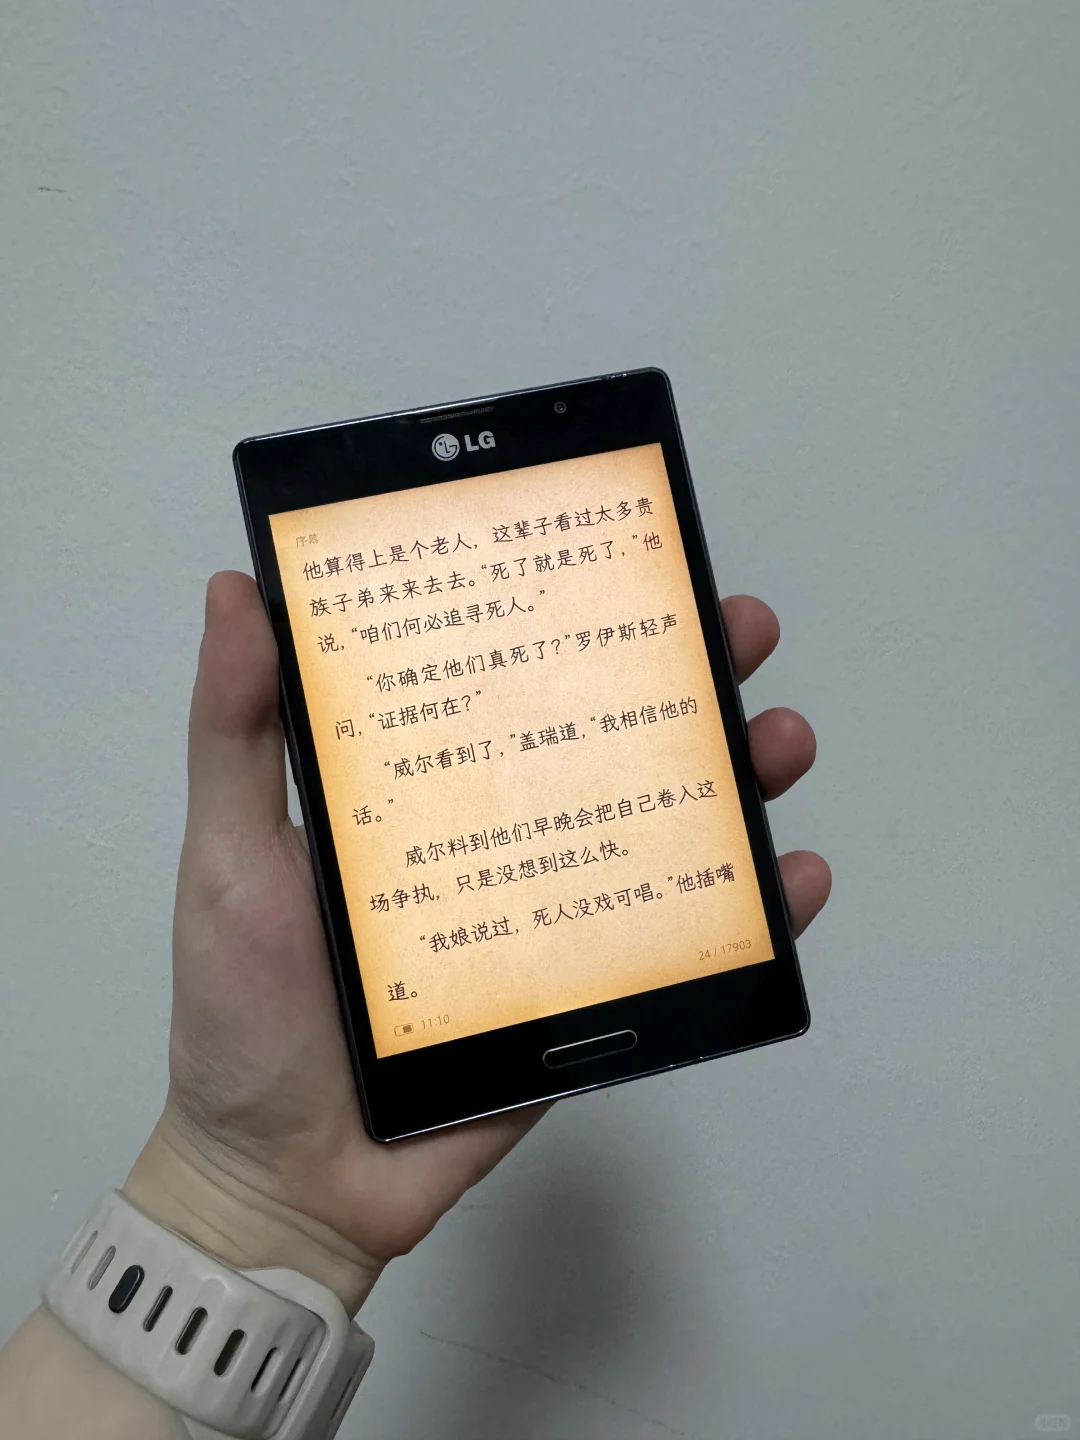 LG
序幕
他算得上是个老人，这辈子看过太多贵
族子弟来来去去。“死了就是死了，”他
说，“咱们何必追寻死人。”
“你确定他们真死了？”罗伊斯轻声
问，“证据何在？”
“威尔看到了，”盖瑞道，“我相信他的
话。”
威尔料到他们早晚会把自己卷入这
场争执，只是没想到这么快。
“我娘说过，死人没戏可唱。”他插嘴
道。
24 / 17903
11:10
小红书